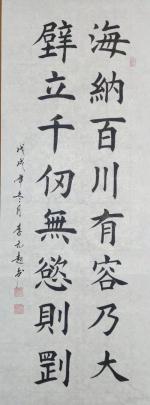 海納百川有容乃大
壁立千仞無慾則剛
戊戌年冬月李元超书